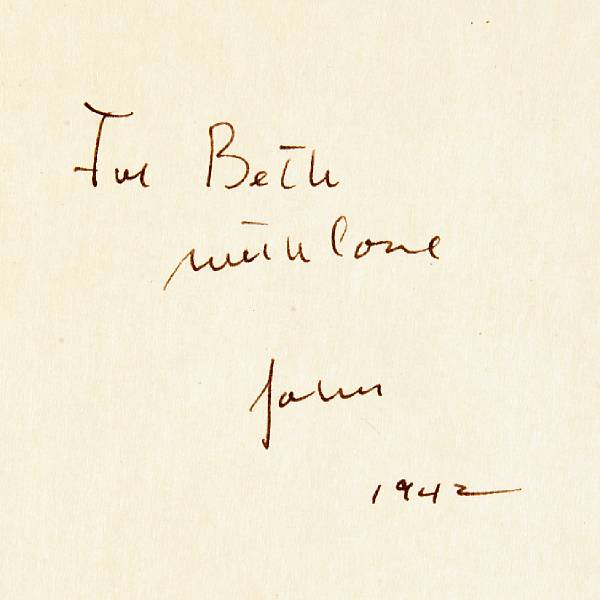 For Beth
with love
John
1942